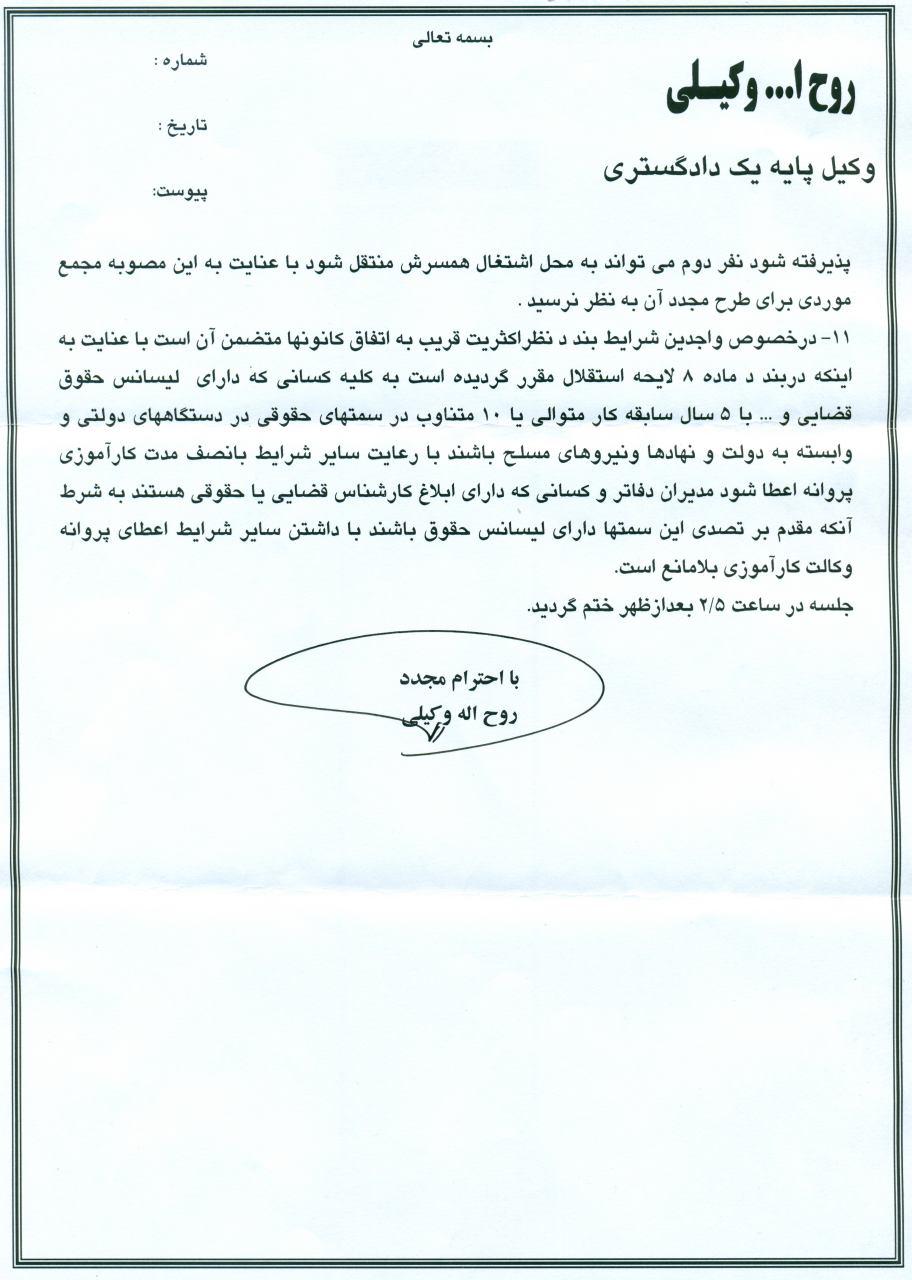 بسمه تعالی
روح ا... وکیلی
وکیل پایه یک دادگستری
شماره :
تاریخ :
پیوست:
پذیرفته شود نفر دوم می تواند به محل اشتغال همسرش منتقل شود با عنایت به این مصوبه مجمع
موردی برای طرح مجدد آن به نظر نرسید .
۱۱- درخصوص واجدین شرایط بند د نظراکثریت قریب به اتفاق کانونها متضمن آن است با عنایت به
اینکه دربند د ماده ۸ لایحه استقلال مقرر گردیده است به کلیه کسانی که دارای لیسانس حقوق
قضایی و ... با ۵ سال سابقه کار متوالی یا ۱۰ متناوب در سمتهای حقوقی در دستگاههای دولتی و
وابسته به دولت و نهادها ونیروهای مسلح باشند با رعایت سایر شرایط بانصف مدت کارآموزی
پروانه اعطا شود مدیران دفاتر و کسانی که دارای ابلاغ کارشناس قضایی یا حقوقی هستند به شرط
آنکه مقدم بر تصدی این سمتها دارای لیسانس حقوق باشند با داشتن سایر شرایط اعطای پروانه
وکالت کارآموزی بلامانع است.
جلسه در ساعت ۲/۵ بعدازظهر ختم گردید.
با احترام مجدد
روح اله وکیلی